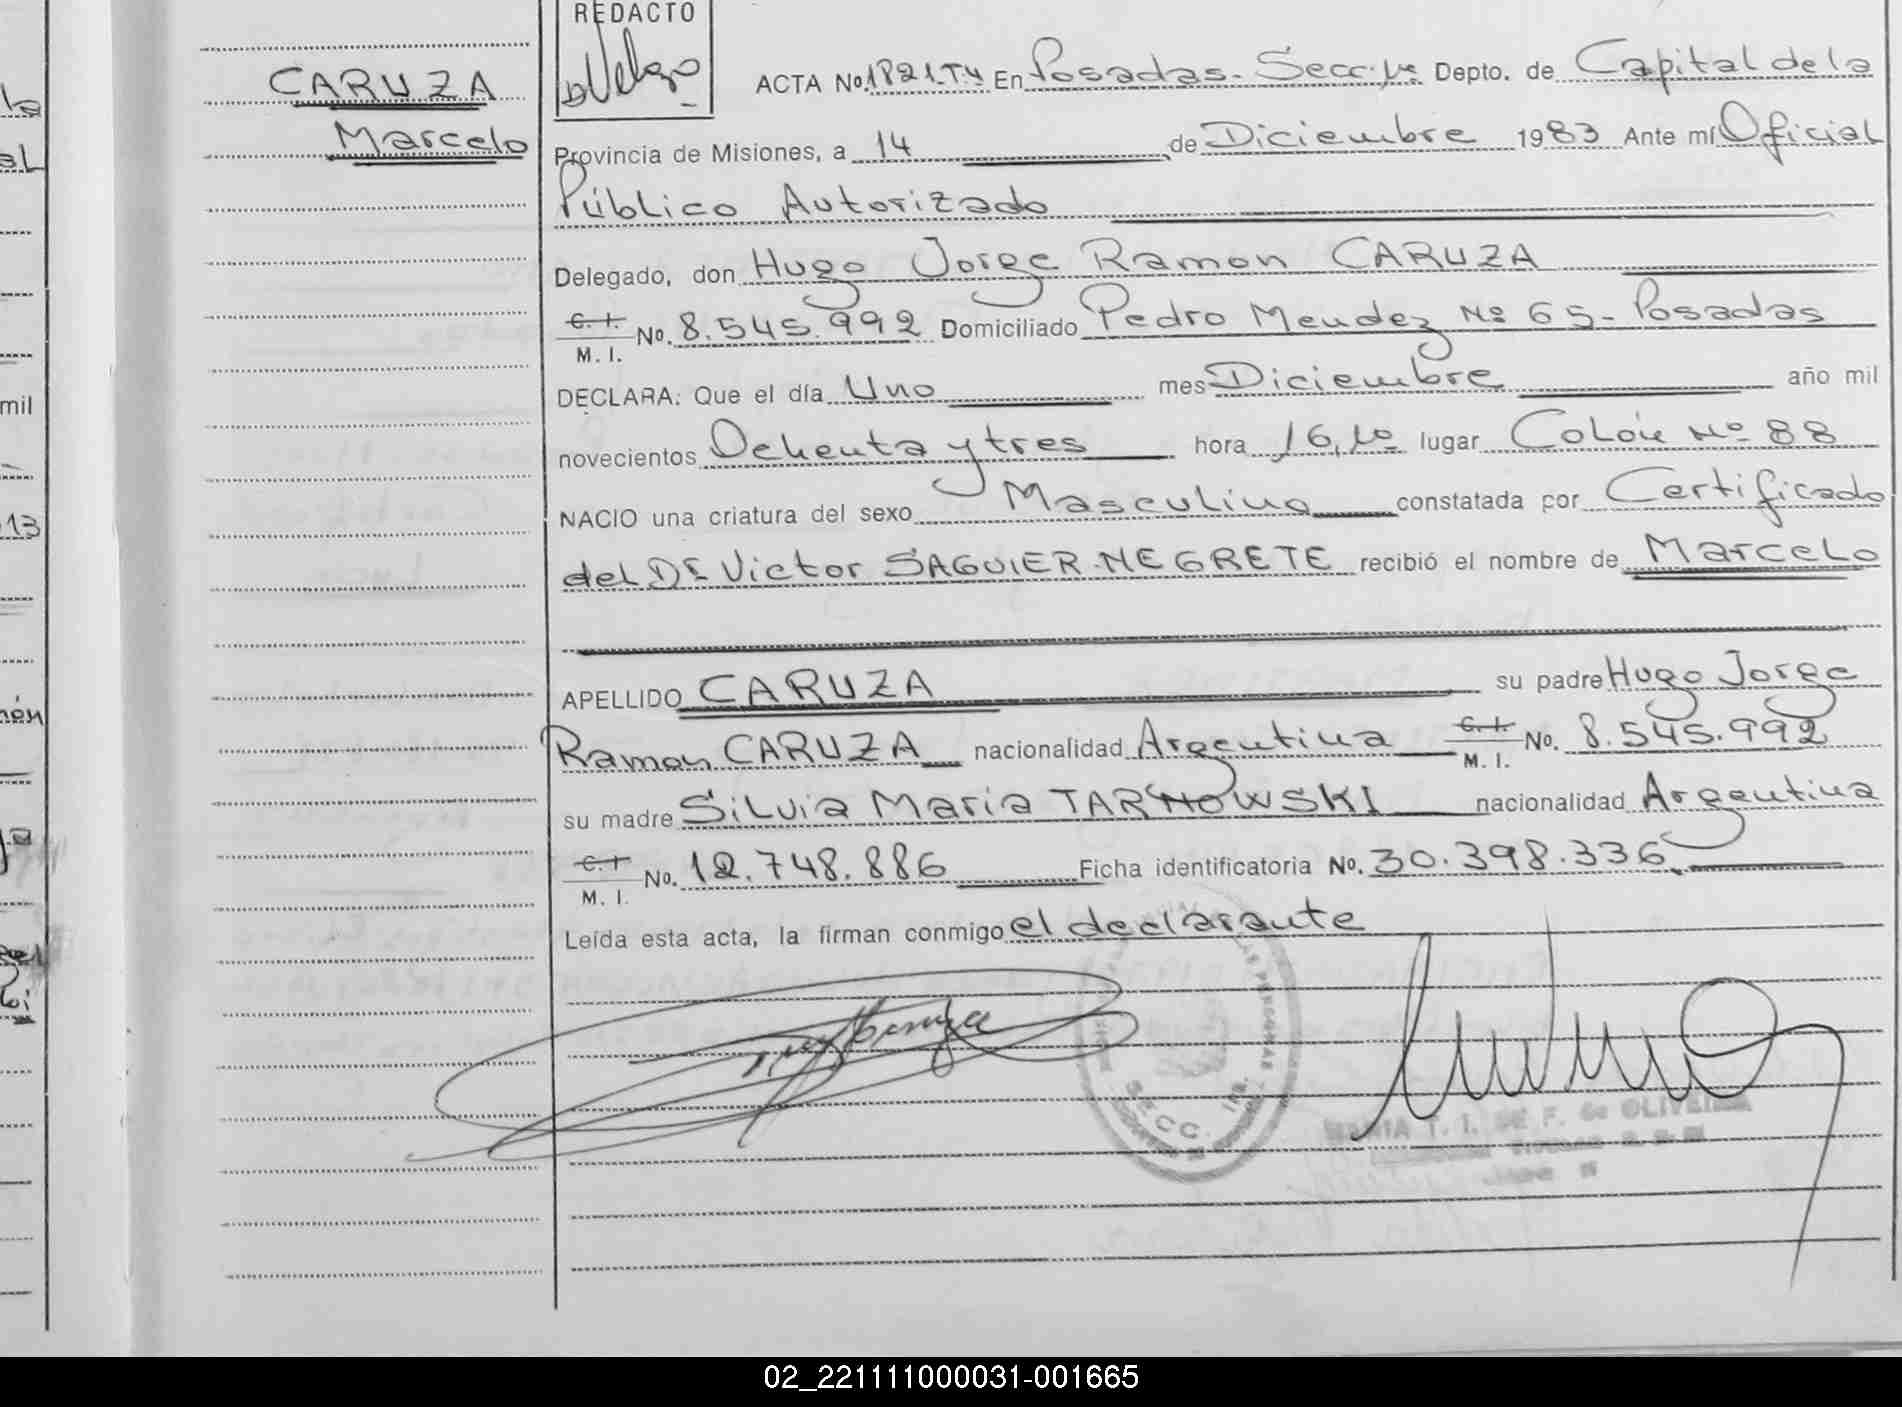 REDACTO
CARUZA
Marcelo
ACTA No. 1821.T4 En Posadas. Secc. 1ra Depto. de Capital de la
Provincia de Misiones, a 14 de Diciembre 1983 Ante mí Oficial
Público Autorizado
Delegado, don Hugo Jorge Ramon CARUZA
C. I. M. I. No. 8.545.992 Domiciliado Pedro Mendez Nº 65 - Posadas
DECLARA: Que el día Uno mes Diciembre año mil
novecientos Ochenta y tres hora 16,10 lugar Colón Nº 88
NACIO una criatura del sexo Masculino constatada por Certificado
del Dr Victor SAGUIER NEGRETE recibió el nombre de Marcelo
APELLIDO CARUZA su padre Hugo Jorge
Ramon CARUZA nacionalidad Argentina C. I. M. I. No. 8.545.992
su madre Silvia Maria TARNOWSKI nacionalidad Argentina
C. I M. I. No. 12.748.886 Ficha identificatoria No. 30.398.336
Leída esta acta, la firman conmigo el declarante
SECC. 1ra.
MARIA T. I. DE F. de OLIVEIRA
02_221111000031-001665